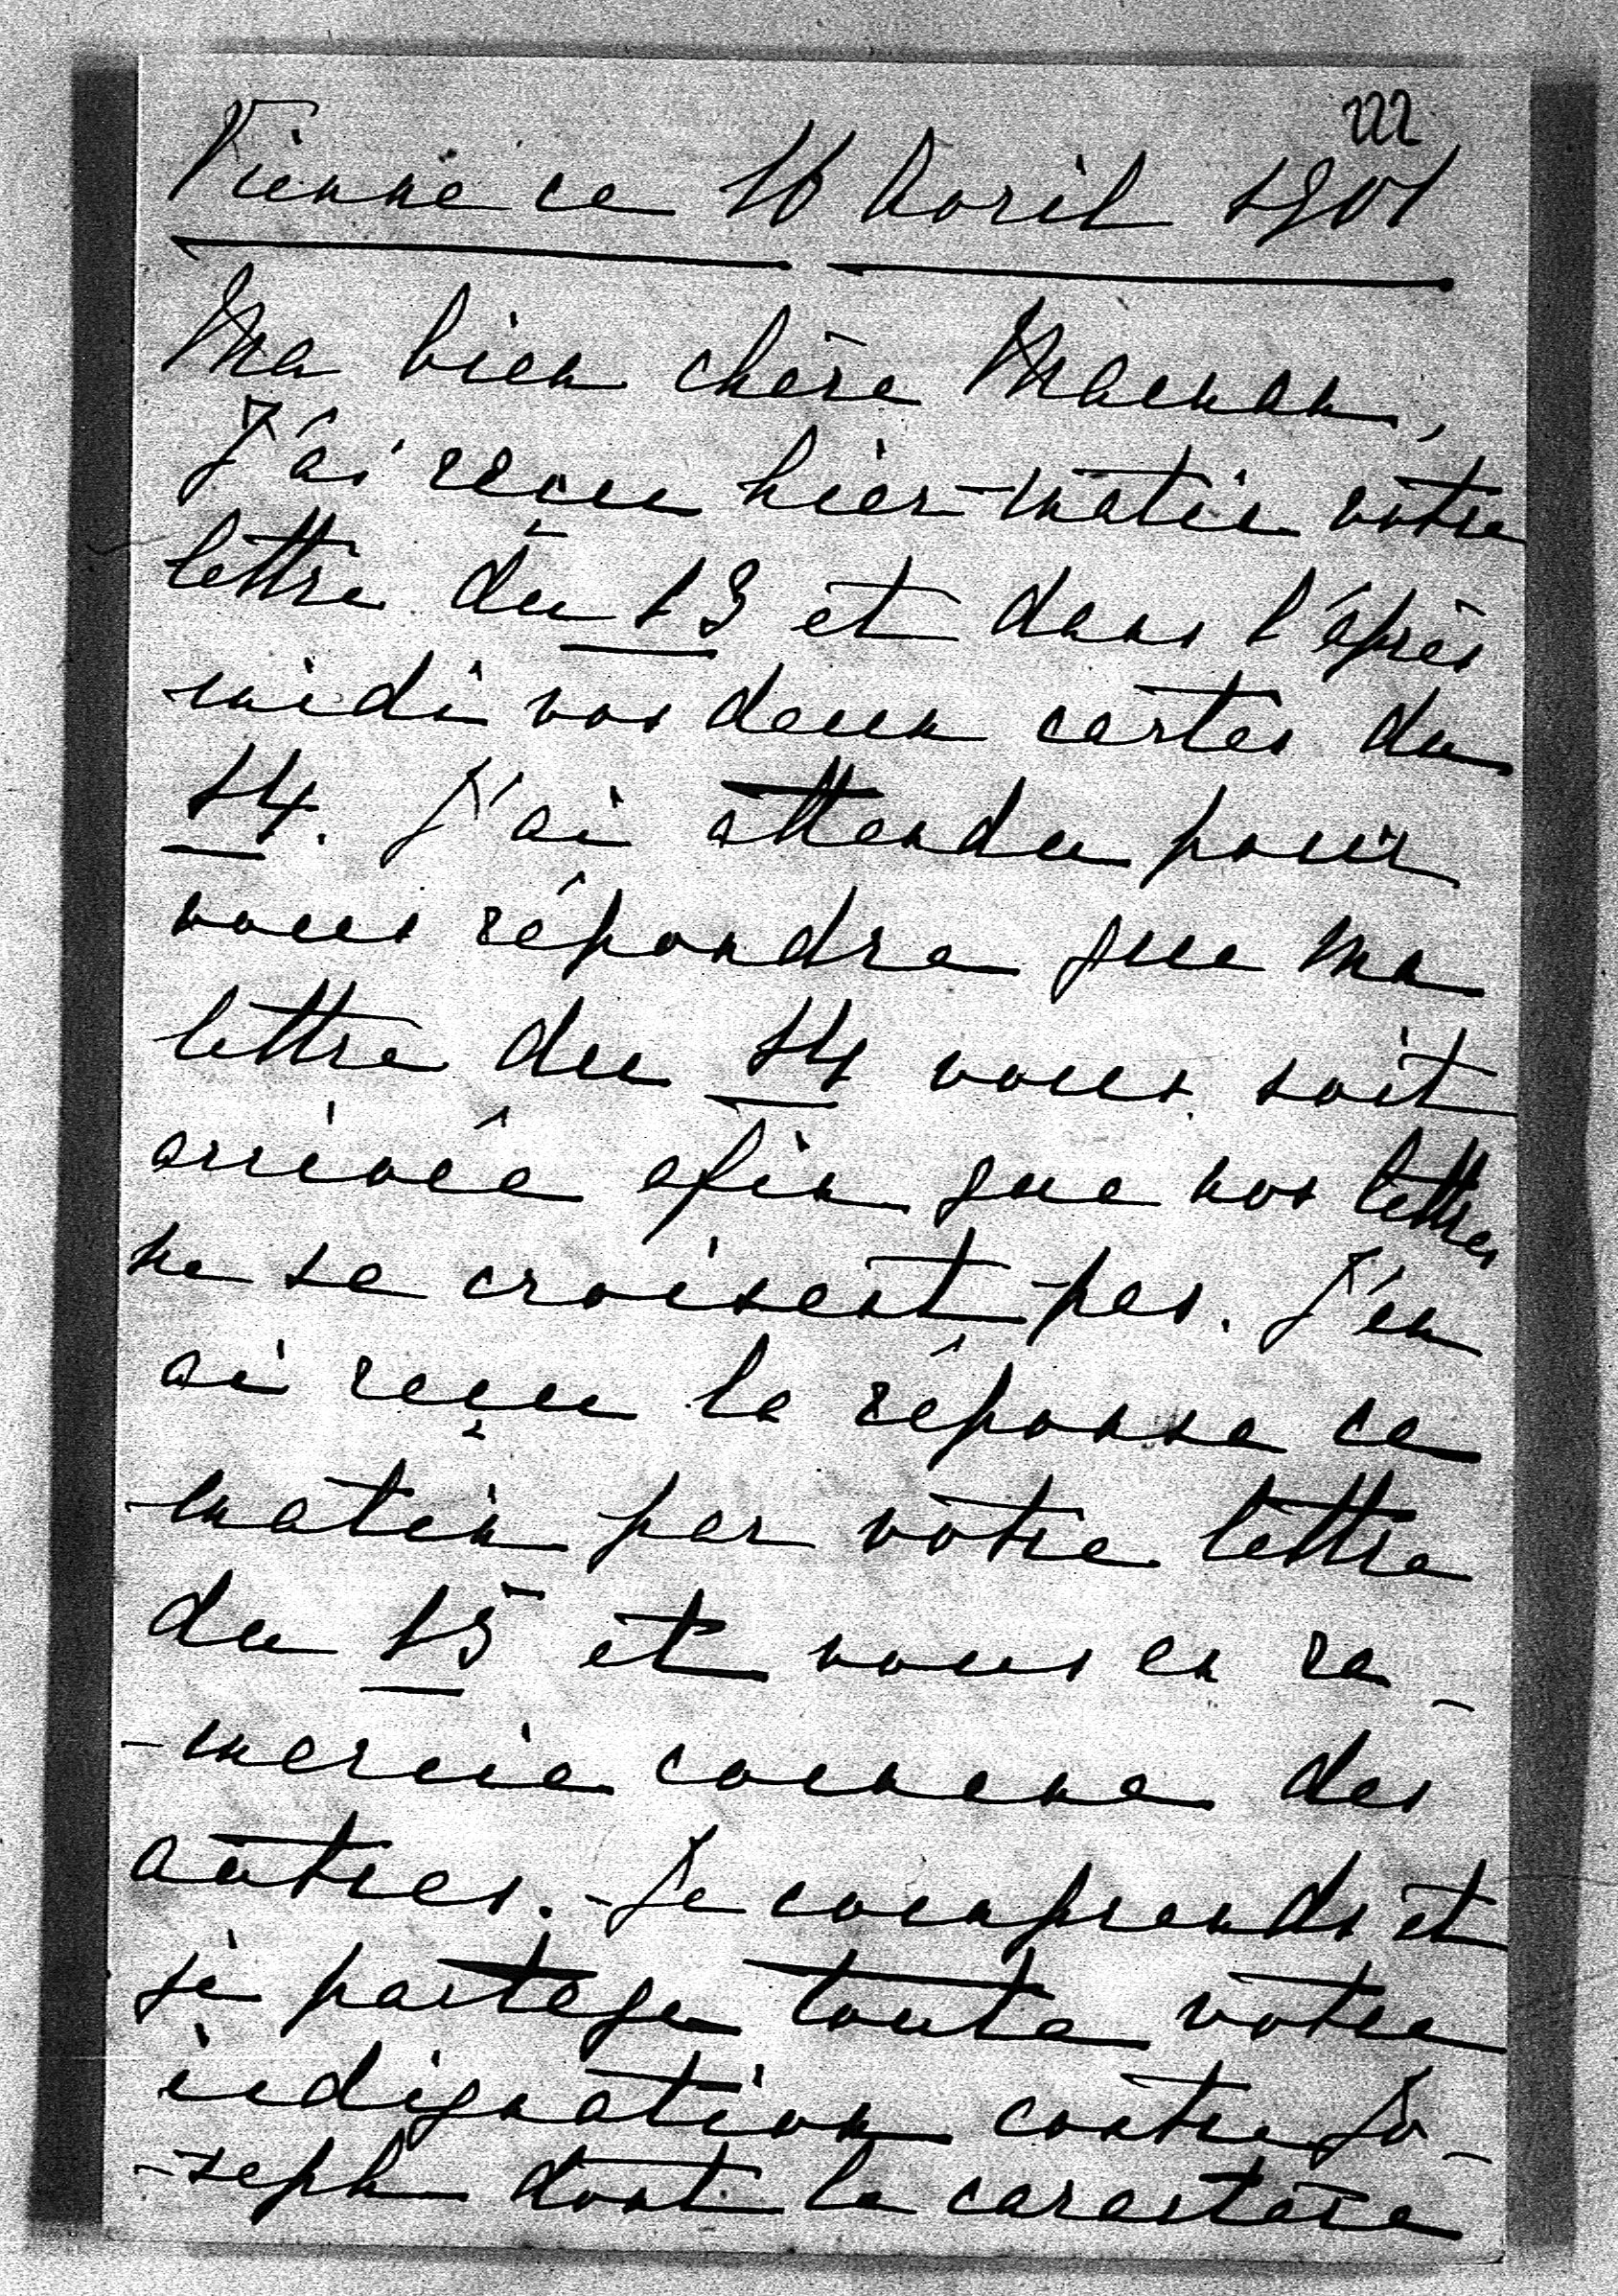 222
Vienne ce 16 Avril 1901
Ma bien chère Maman,
J'ai reçu hier matin votre
lettre du 13 et dans l'après
midi vos deux cartes du
14. J'ai attendu pour
vous répondre que ma
lettre du 14 vous soit
arrivée afin que nos lettres
ne se croisent pas. J'en
ai reçu la réponse ce
matin par votre lettre
du 15 et vous en re-
-mercie comme des
autres. - Je comprends et
je partage toute votre
indignation contre Jo-
-seph dont le caractère